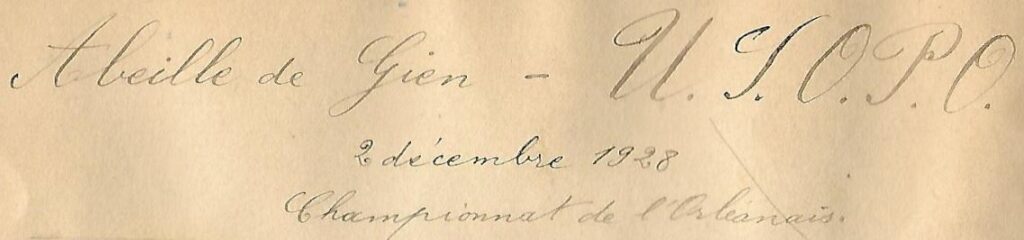 Abeille de Gien - U.S.O.P.O.
2 décembre 1928
Championnat de l'Orléanais.